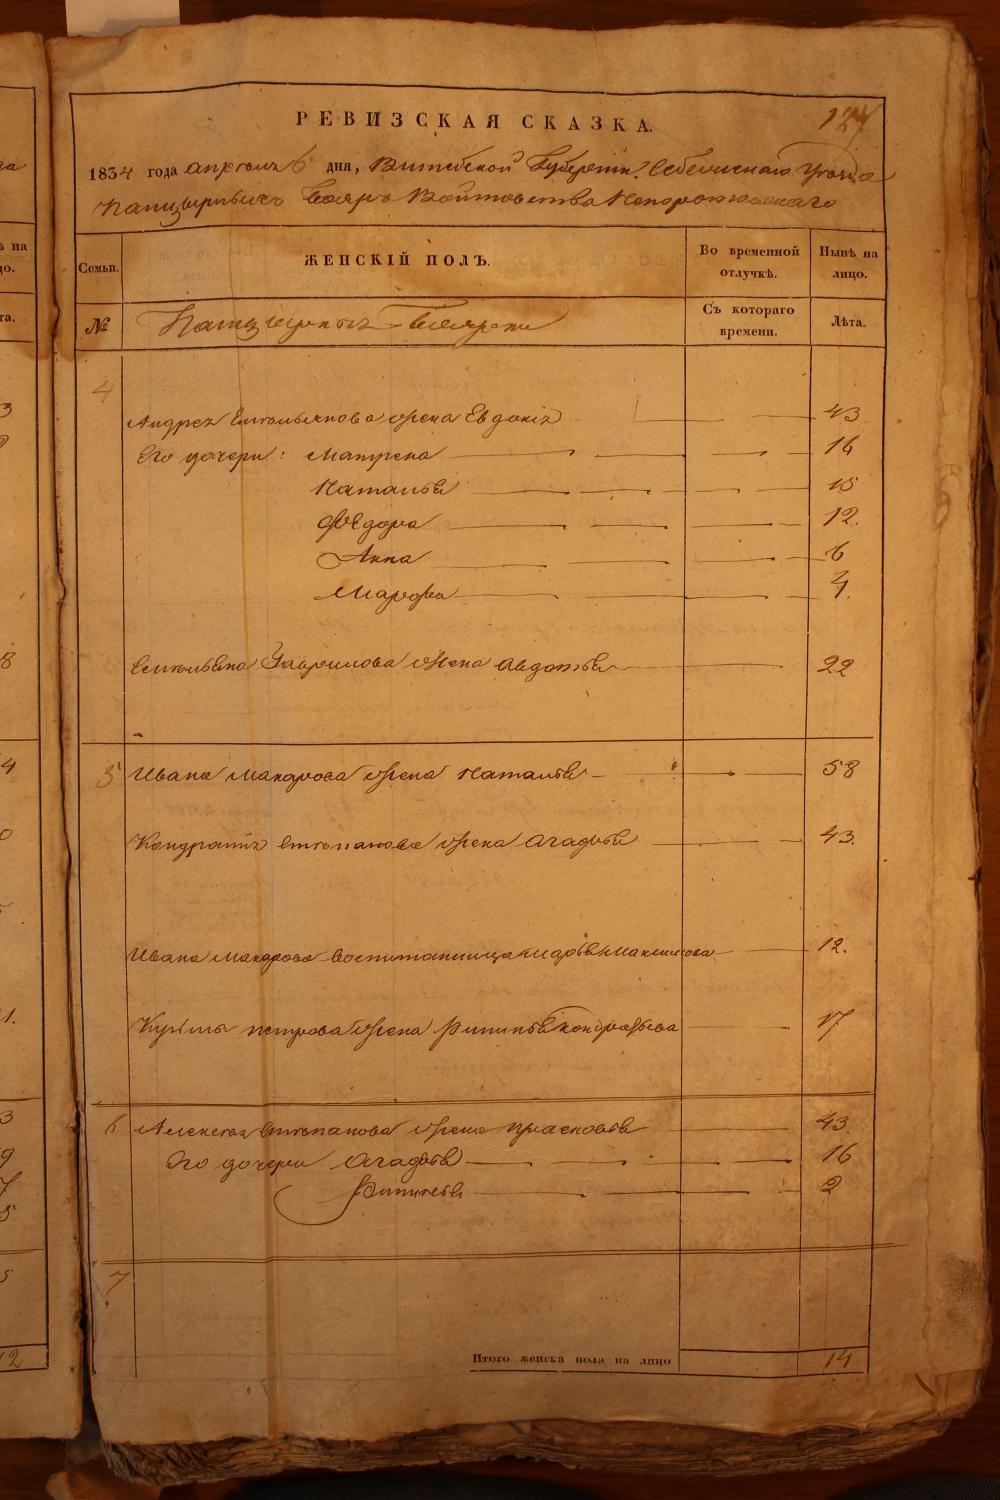 РЕВИЗСКАЯ СКАЗКА.
127
1834 года апреля 6 дня, Витебской Губерніи Себежскаго Уезда
Панцырныхъ бояръ Войтовства Непоротовскаго
Семьи.
ЖЕНСКІЙ ПОЛЪ.
Во временной отлучкѣ.
Нынѣ на лицо.
№
Панцырныя боярки
Съ котораго времени.
Лѣта.
4
Андрея Емельянова жена Евдокія 43
Его дочери: Матрена 16
Наталья 15
Федора 12.
Анна 6
Марфа 4.
Емельяна Гаврилова жена Авдотья 22
5 Ивана Макарова жена Наталья 58
Кондратія Степанова жена Агафья 43.
Ивана Макарова воспитанница Марья Максимова 12.
Кузьмы Петрова жена Фитинья Кондратьева 17
6 Алексея Степанова жена Прасковья 43.
Его дочери Агафья 16
Фитинья 2
7
Итого женска пола на лицо 14